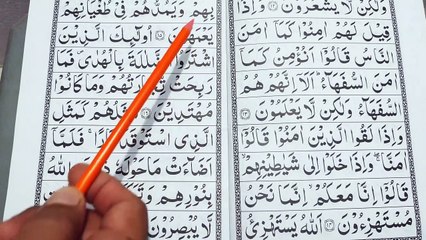 وَلٰكِنْ لَّا يَشْعُرُوْنَ ۝۱۲ وَاِذَا
قِيْلَ لَهُمْ اٰمِنُوْا كَمَاۤ اٰمَنَ
النَّاسُ قَالُوْۤا اَنُؤْمِنُ كَمَاۤ
اٰمَنَ السُّفَهَآءُ ؕ اَلَاۤ اِنَّهُمْ هُمُ
السُّفَهَآءُ وَلٰكِنْ لَّا يَعْلَمُوْنَ ۝۱۳
وَاِذَا لَقُوا الَّذِيْنَ اٰمَنُوْا قَالُوْۤا
اٰمَنَّا ۖۚ وَاِذَا خَلَوْا اِلٰى شَيٰطِيْنِهِمْ ۙ
قَالُوْۤا اِنَّا مَعَكُمْ ۙ اِنَّمَا نَحْنُ
مُسْتَهْزِءُوْنَ ۝۱۴ اَللّٰهُ يَسْتَهْزِئُ
بِهِمْ وَيَمُدُّهُمْ فِيْ طُغْيَانِهِمْ
يَعْمَهُوْنَ ۝۱۵ اُولٰٓئِكَ الَّذِيْنَ
اشْتَرَوُا الضَّلٰلَةَ بِالْهُدٰى ۪ فَمَا
رَبِحَتْ تِّجَارَتُهُمْ وَمَا كَانُوْا
مُهْتَدِيْنَ ۝۱۶ مَثَلُهُمْ كَمَثَلِ
الَّذِى اسْتَوْقَدَ نَارًا ۚ فَلَمَّاۤ
اَضَآءَتْ مَا حَوْلَهٗ اللّٰهُ
بِنُوْرِهِمْ
لَّا يُبْصِرُوْنَ